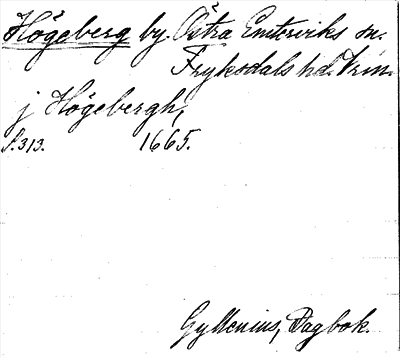 Högeberg by Östra Emterviks sn.
Fryksdals hd. Vrm.
j Högebergh,
S. 313. 1665.
Gyllenius, Dagbok.